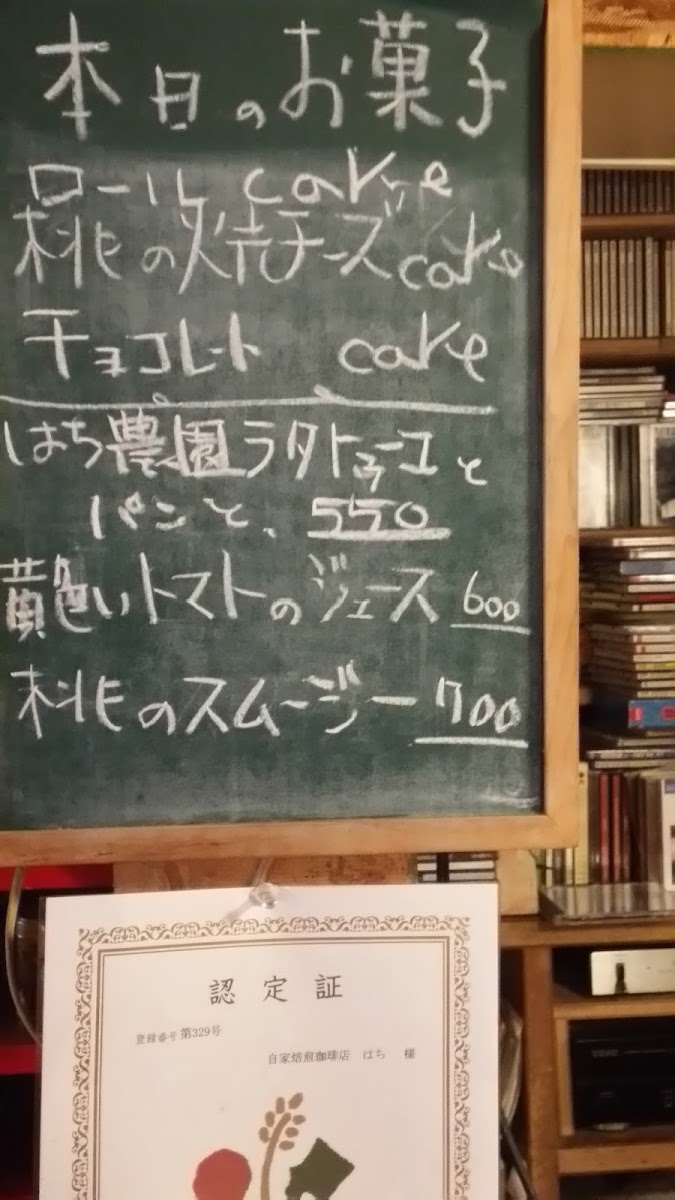 本日のお菓子
ロール cake
桃の焼チーズcake
チョコレート cake
はち農園ラタトゥーユと
パンと、550
黄色いトマトのジュース 600
桃のスムージー 700
認定証
登録番号 第329号
自家焙煎珈琲店 はち 様